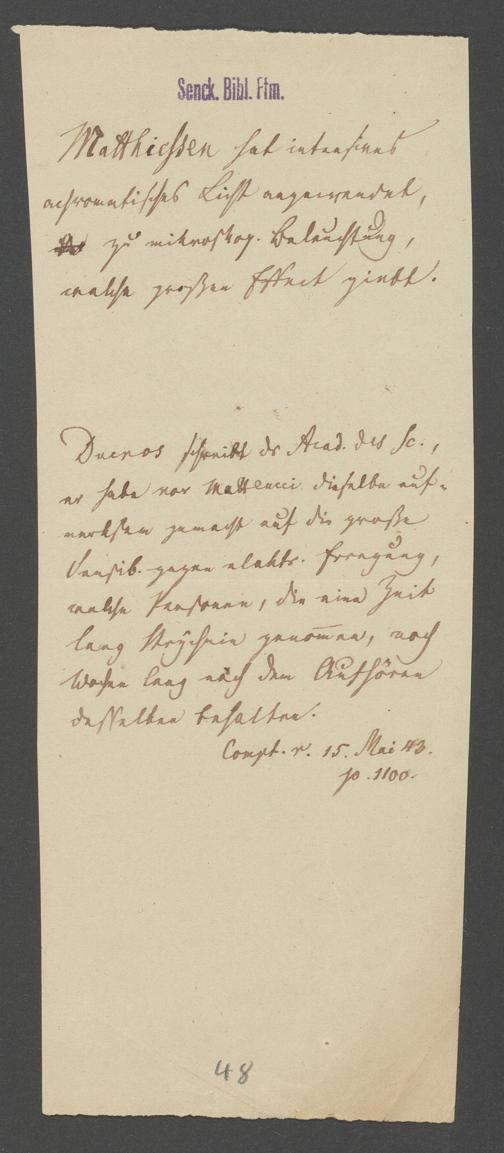 Senck. Bibl. Ffm.
Matthiessen hat intensives
achromatisches Licht angewendet,
zu mikroskop. Beleuchtung,
welche großen Effect giebt.
Ducros schreibt der Acad. des Sc.,
er habe vor Matteucci dieselbe auf-
merksam gemacht auf die große
Sensib. gegen elektr. Erregung,
welche Personen, die eine Zeit
lang Strychnin genom̅en, noch
Wochen lang nach dem Aufhören
desselben behalten.
Compt. r. 15. Mai 43.
p. 1100.
48